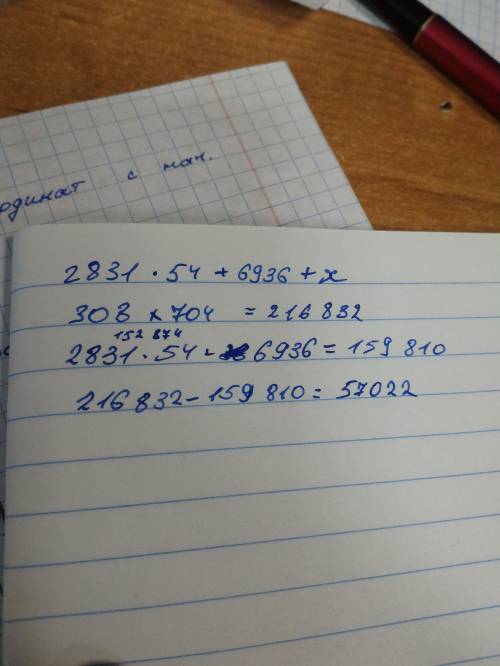 одинат с нач.
2831 · 54 + 6936 + x
308 × 704 = 216 832
152 874
2831 · 54 - 6936 = 159 810
216 832 - 159 810 = 57022